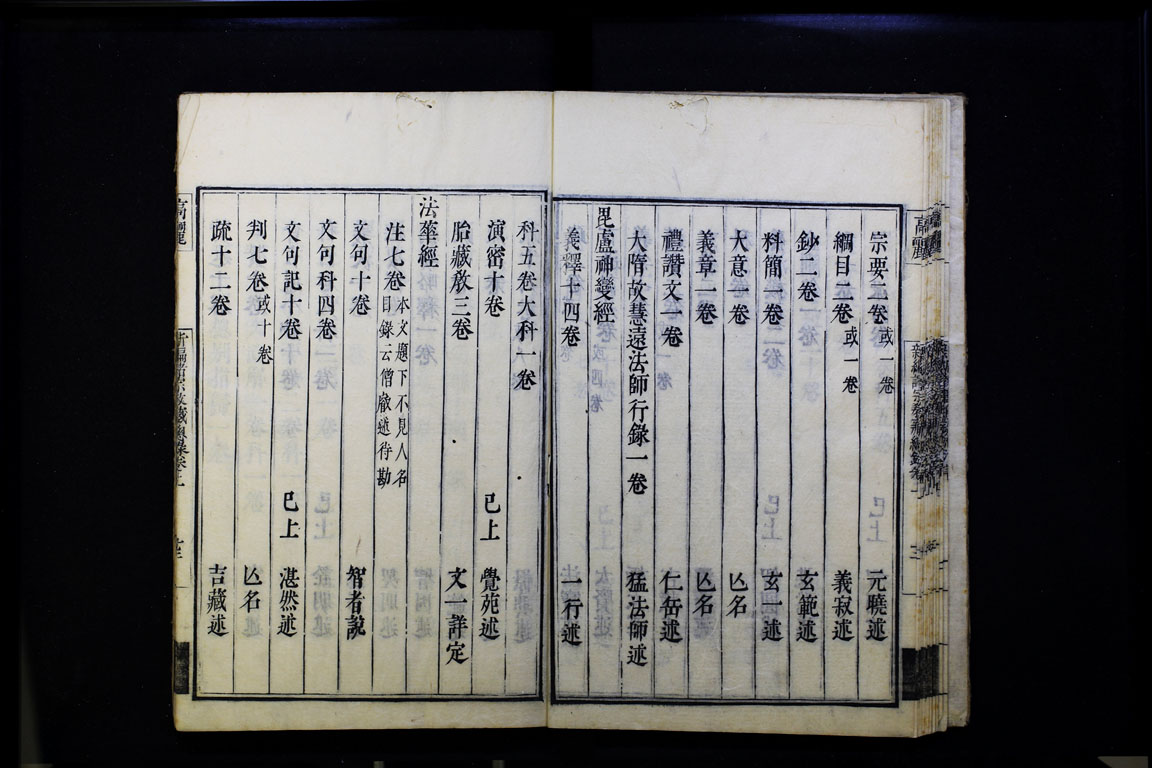 宗要二卷 或一卷 元曉述
綱目二卷 或一卷 義寂述
鈔二卷 玄範述
料簡一卷 玄一述
大意一卷 亾名
義章一卷 亾名
禮讚文一卷 仁岳述
大隋故慧遠法師行錄一卷 猛法師述
毘盧神變經
義釋十四卷 一行述
科五卷大科一卷
演密十卷 已上 覺苑述
胎藏教三卷 文一詳定
法華經
注七卷 本文題下不見人名目錄云僧
文句十卷 智者說
文句科四卷
文句記十卷 已上 湛然述
判七卷 或十卷 亾名
疏十二卷 吉藏述